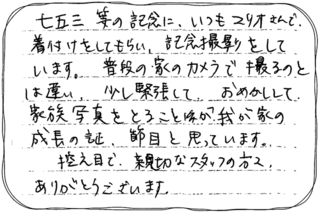 七五三 等の記念に、いつもマリオさんで、
着付けをしてもらい、記念撮影をして
います。 普段の家のカメラで撮るのと
は違い、少し緊張して、おめかしして
家族写真をとることが我が家の
成長の証、節目と思っています。
控え目で、親切なスタッフの方々、
ありがとうございます。